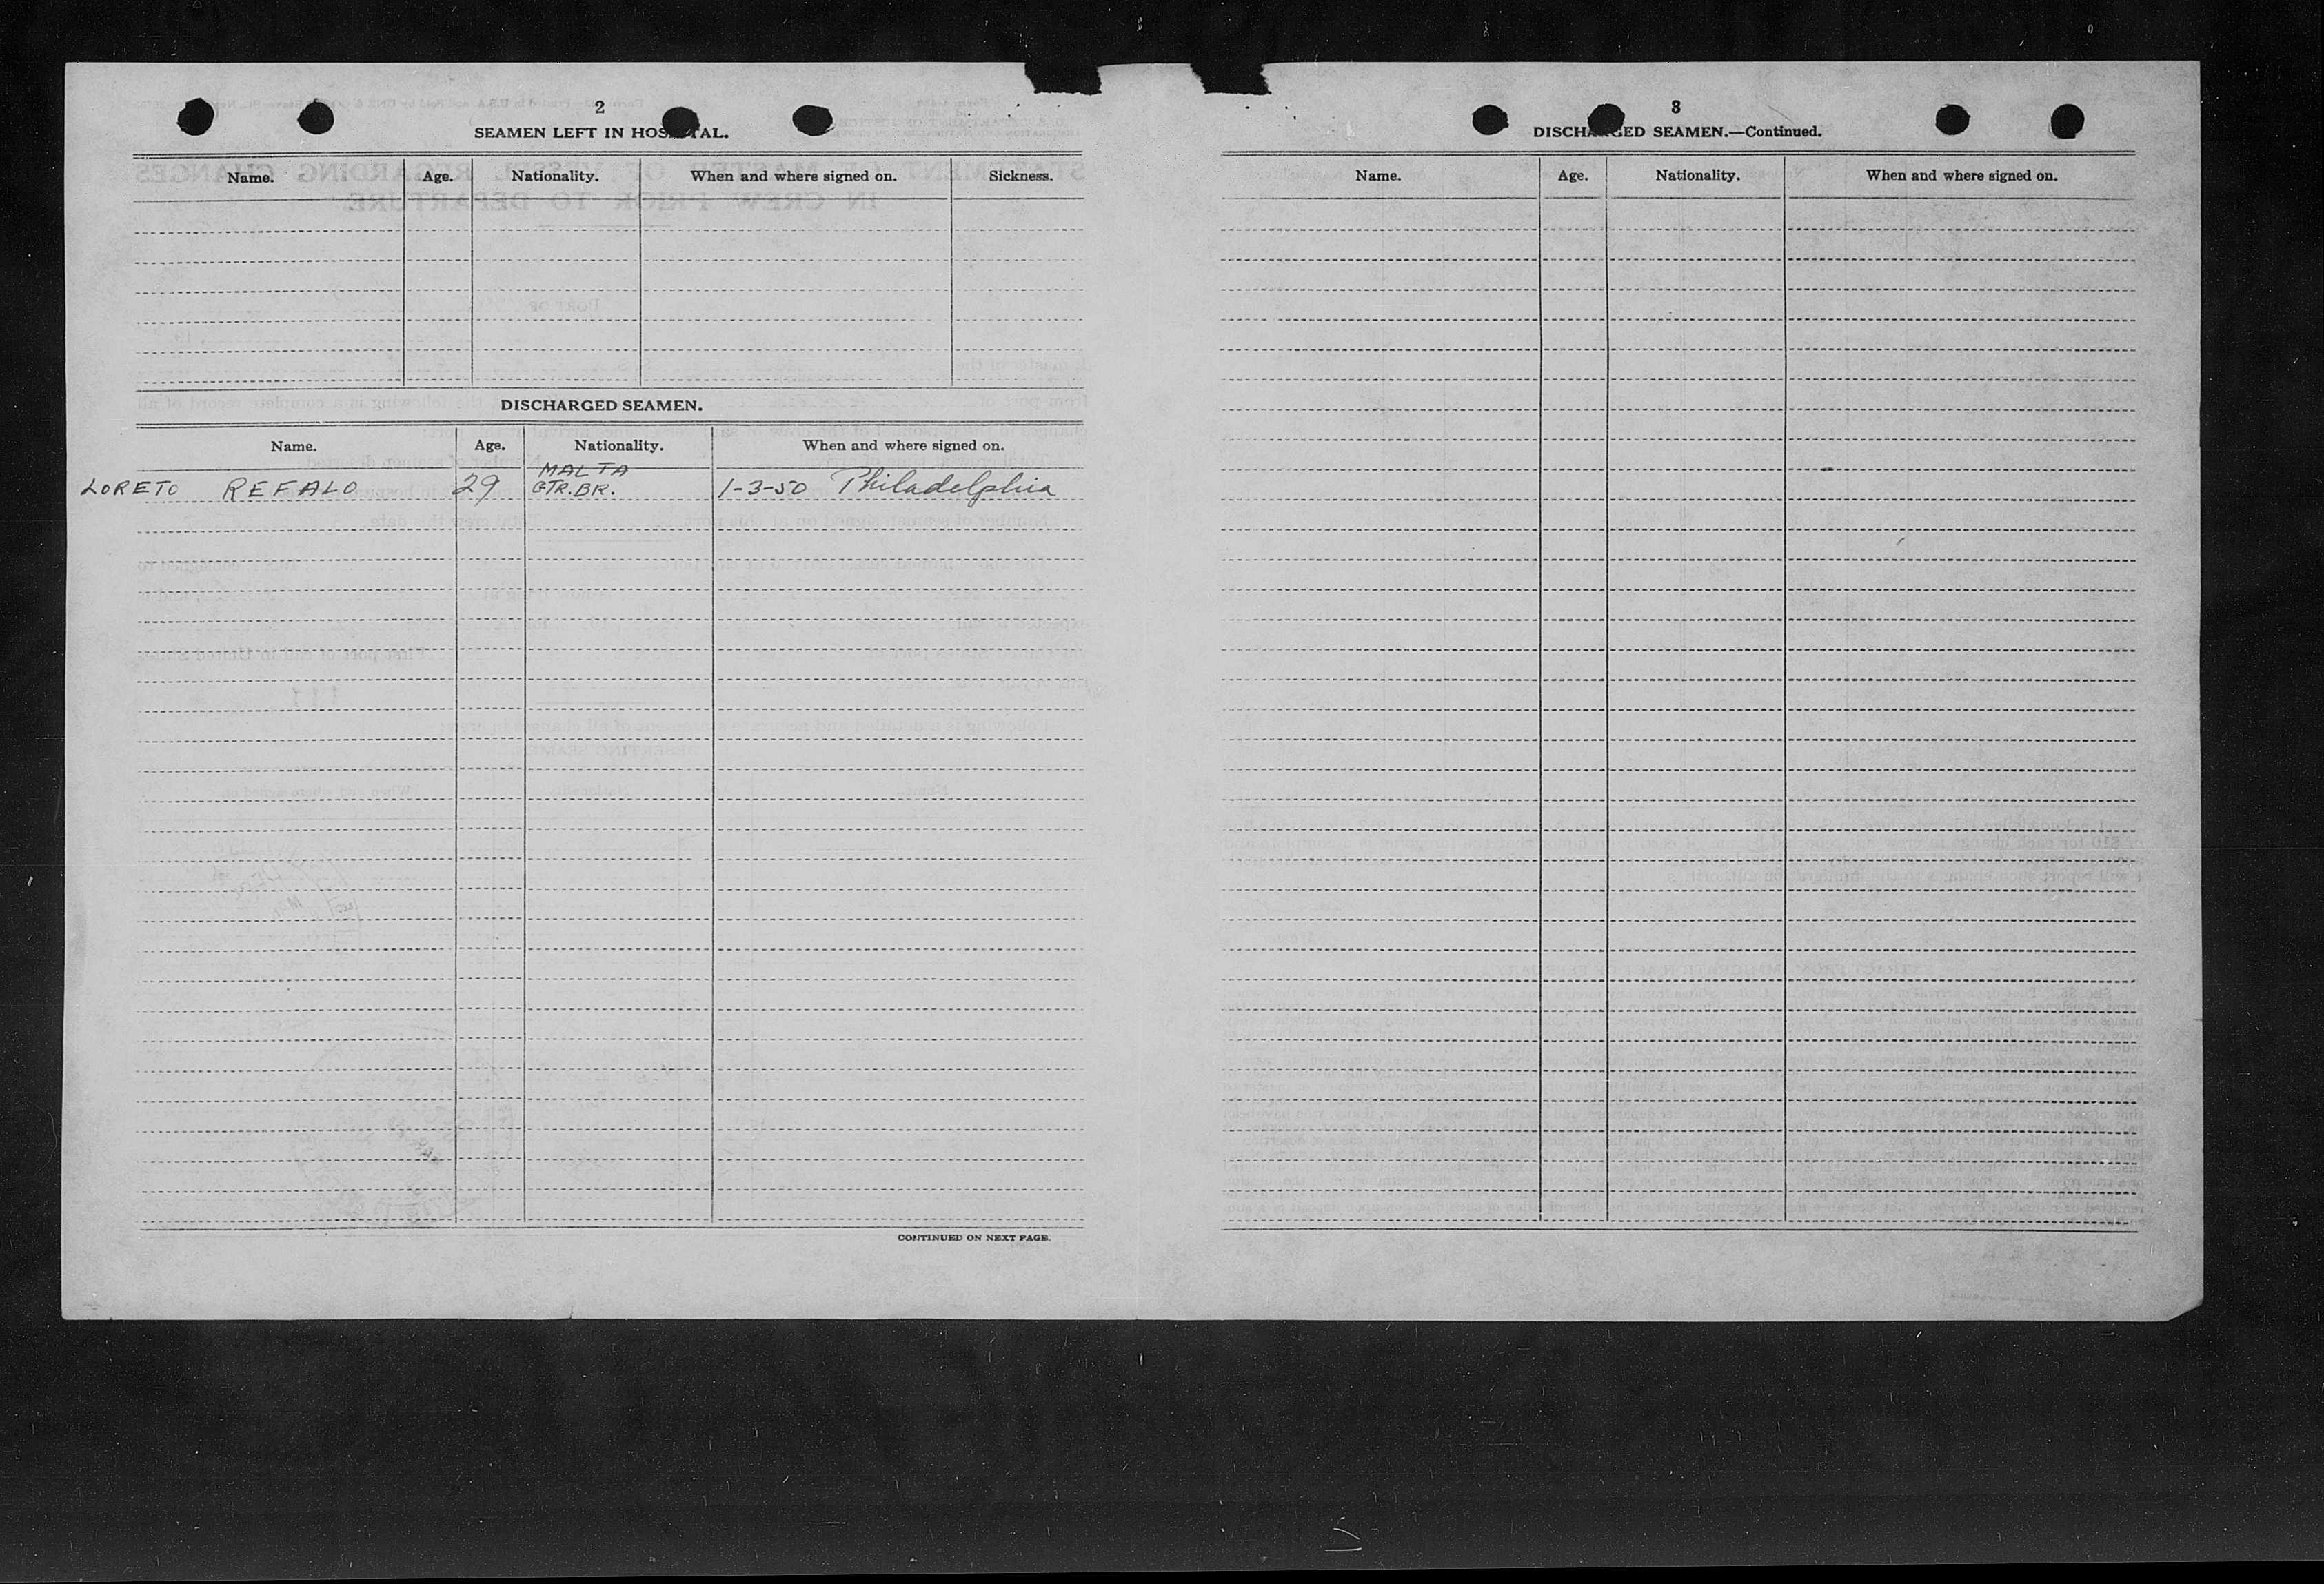 2
SEAMEN LEFT IN HOSPITAL.
Name. Age. Nationality. When and where signed on. Sickness.
DISCHARGED SEAMEN.
Name. Age. Nationality. When and where signed on.
MALTA
LORETO REFALO 29 GTR.BR. 1-3-50 Philadelphia
CONTINUED ON NEXT PAGE.
3
DISCHARGED SEAMEN.—Continued.
Name. Age. Nationality. When and where signed on.